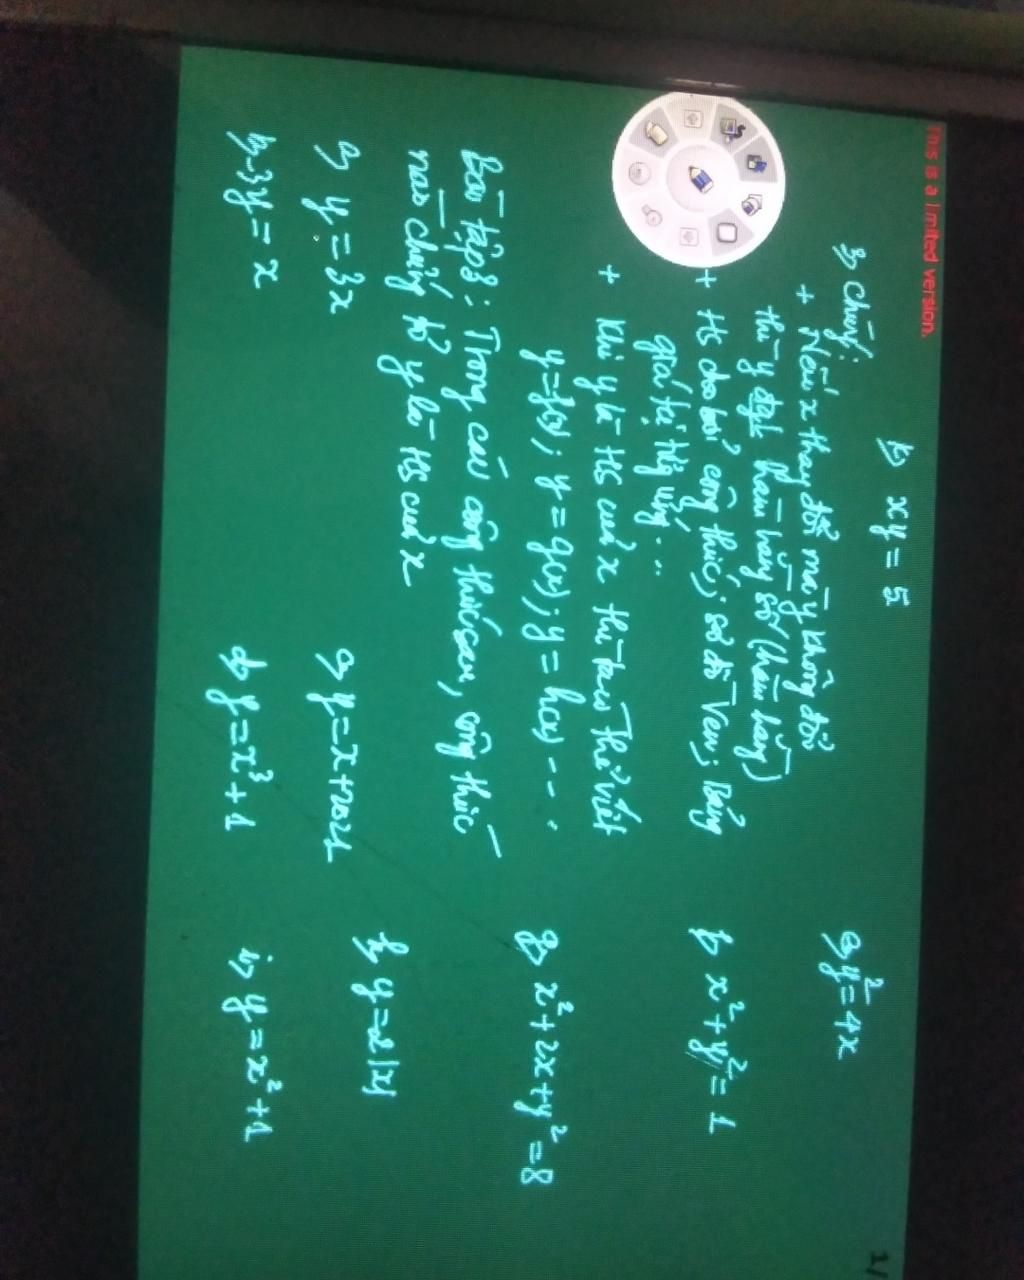 This is a limited version.
b, xy = 5
3, chú ý:
+ Nếu x thay đổi mà y không đổi
thì y đgl hàm hằng số (hàm hằng)
+ Hs cho bởi công thức; sơ đồ Ven; Bảng
giá trị tg ứng...
+ Khi y là HS của x thì ta có thể viết
y=f(x); y = g(x); y = h(x) - - .
Bài tập 3: Trong các công thức sau, công thức
nào chứng tỏ y là HS của x
a, y = 3x
b, -3y = x
c, y = x+2021
d, y = x³ + 1
e, y² = 4x
f, x² + y² = 1
g, x² + 2x + y² = 8
h, y = 2|x|
i, y = x² + 1
1/